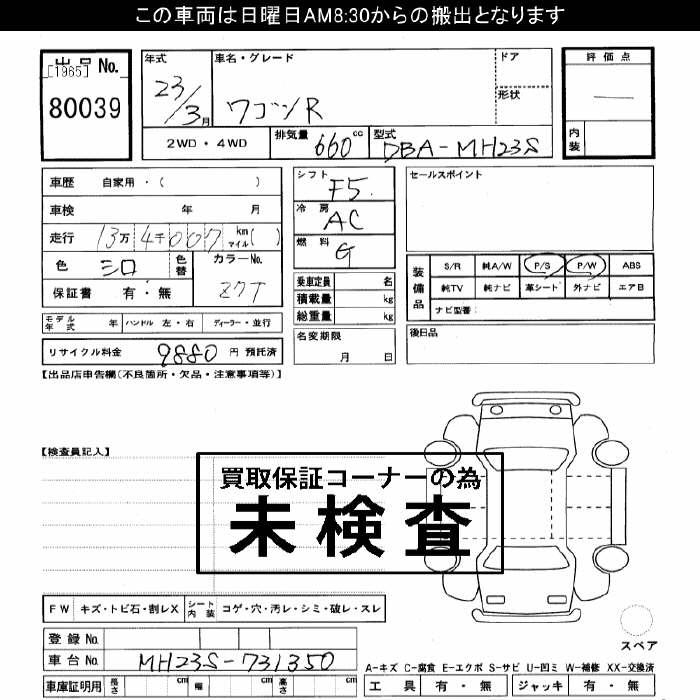 この車両は日曜日AM8:30からの搬出となります
出品 No.
[1965]
80039
年式
23/3月
車名・グレード
ワゴンR
ドア
形状
評価点
―
内装
2WD・4WD
排気量 660 cc
型式 DBA-MH23S
車歴 自家用・( )
車検 年 月
走行 13万 4千 007 km マイル( )
色 シロ
色替
カラーNo. Z7T
保証書 有・無
シフト F5
冷房 AC
燃料 G
乗車定員 名
積載量 kg
総重量 kg
セールスポイント
装備品
S/R 純A/W P/S P/W ABS
純TV 純ナビ 革シート 外ナビ エアB
ナビ型番:
モデル年式 年 ハンドル 左・右 ディーラー・並行
リサイクル料金 9880 円 預託済
名変期限 月 日
後日品
【出品店申告欄(不良箇所・欠品・注意事項等)】
【検査員記入】
買取保証コーナーの為
未検査
FW キズ・トビ石・割レX
シート内装 コゲ・穴・汚レ・シミ・破レ・スレ
登録 No.
車台 No. MH23S-731350
車庫証明用 長さ cm 幅 cm 高さ cm
スペア
A-キズ C-腐食 E-エクボ S-サビ U-凹ミ W-補修 XX-交換済
工具 有・無 ジャッキ 有・無